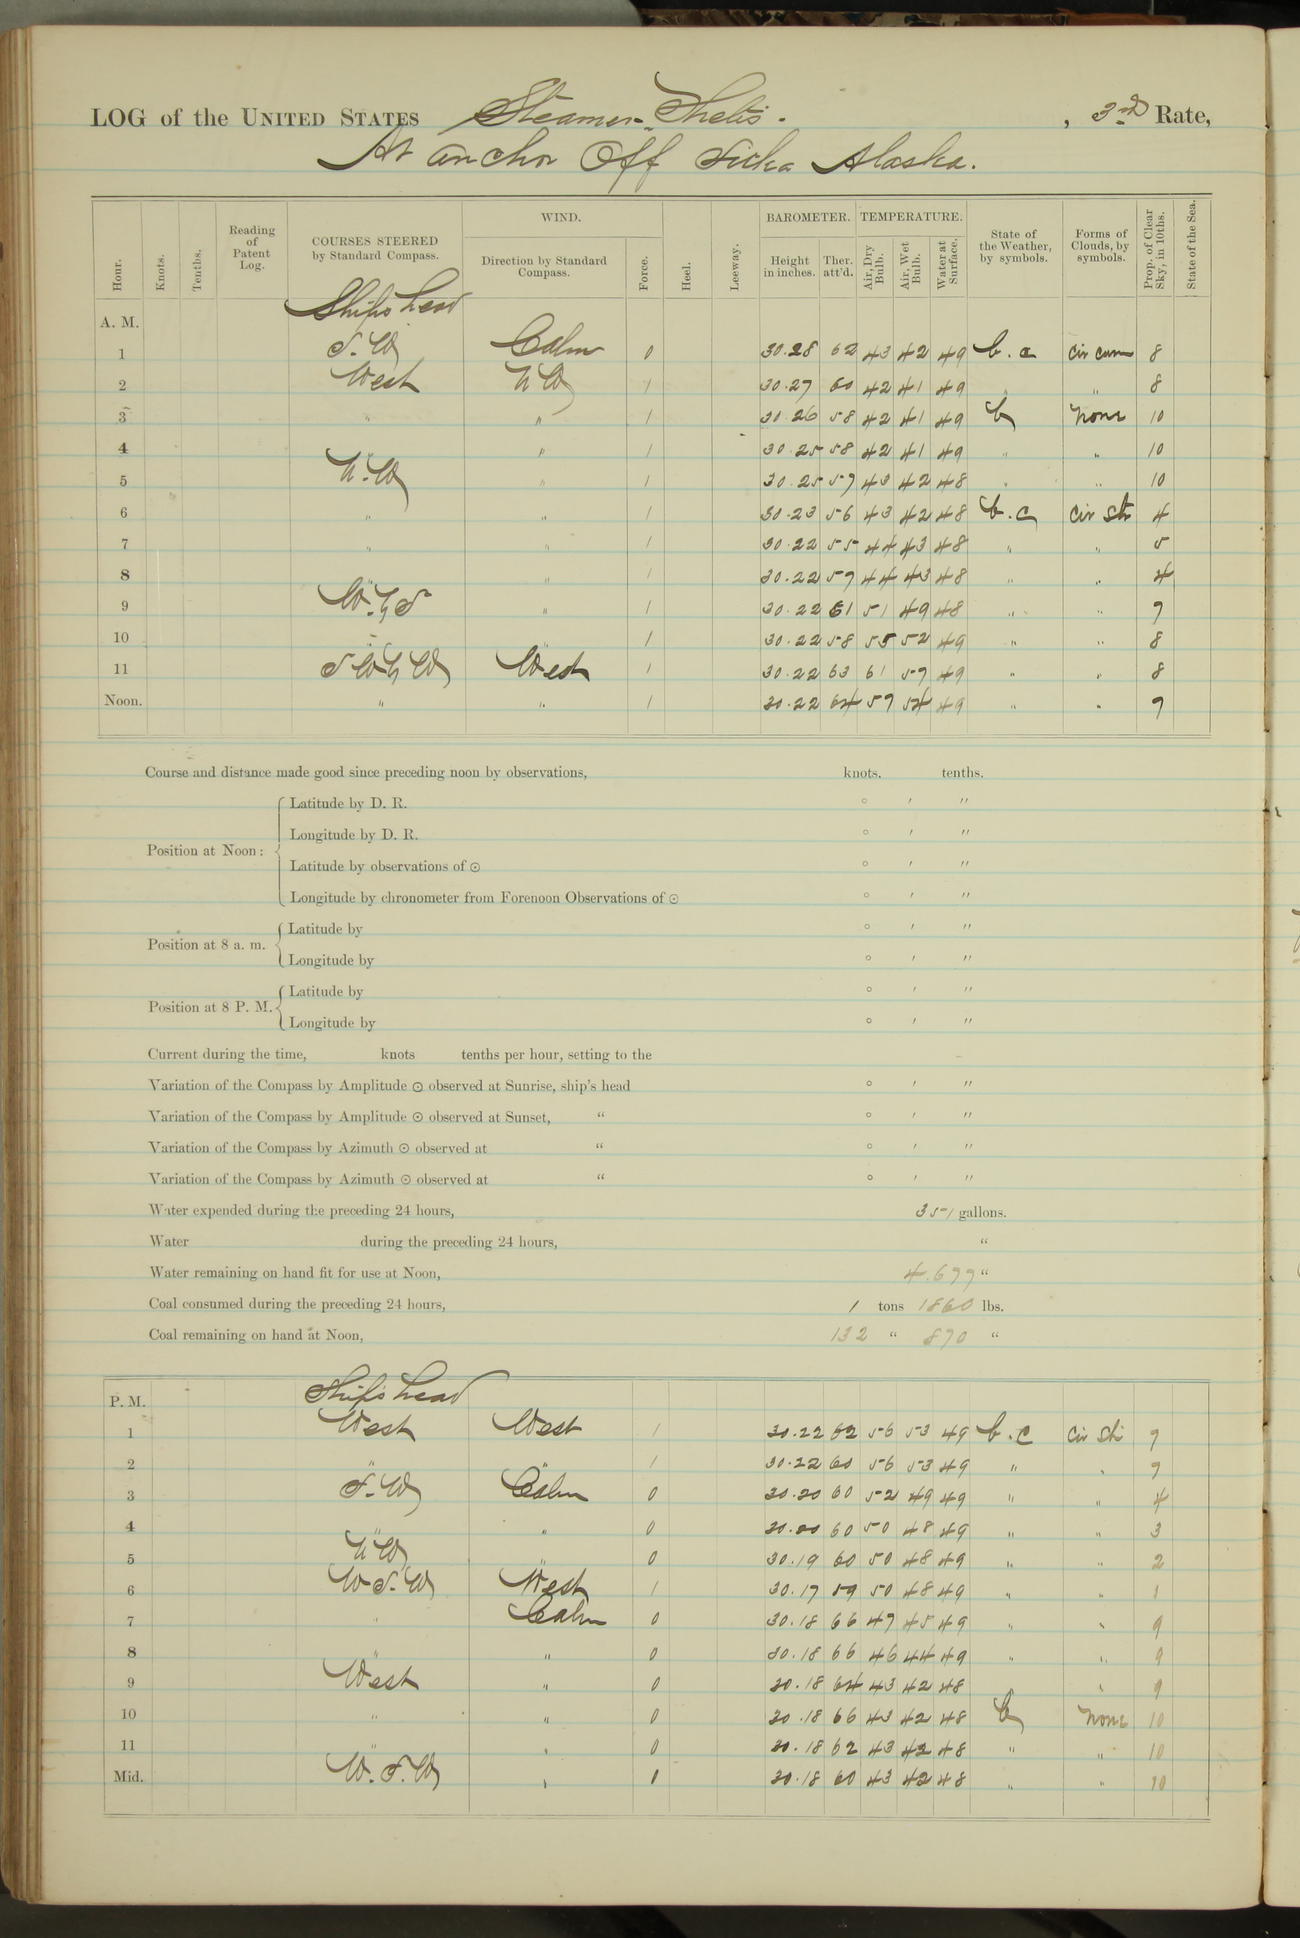 LOG of the UNITED STATES Steamer Thetis. , 3rd Rate,
At anchor Off Sitka Alaska.
Hour. Knots. Tenths. Reading of Patent Log. COURSES STEERED by Standard Compass. WIND. Direction by Standard Compass. Force. Heel. Leeway. BAROMETER. Height in inches. Ther. att'd. TEMPERATURE. Air, Dry Bulb. Air, Wet Bulb. Water at Surface. State of the Weather, by symbols. Forms of Clouds, by symbols. Prop. of Clear Sky, in 10ths. State of the Sea.
A. M. Ship's head
1 S.W Calm 0 30.28 62 43 42 49 b.c cir cum 8
2 West NW 1 30.27 60 42 41 49 " " 8
3 " " 1 30.26 58 42 41 49 b None 10
4 " 1 30.25 58 42 41 49 " " 10
5 N.W " 1 30.25 57 43 42 48 " " 10
6 " " 1 30.23 56 43 42 48 b.c cir str 4
7 " " 1 30.22 55 44 43 48 " " 5
8 " " 1 30.22 57 44 43 48 " " 4
9 W.by S " 1 30.22 61 51 49 48 " " 7
10 " " 1 30.22 58 55 52 49 " " 8
11 SW by W West 1 30.22 63 61 57 49 " " 8
Noon. " " 1 30.22 64 57 54 49 " " 7
Course and distance made good since preceding noon by observations, knots. tenths.
Position at Noon: Latitude by D. R. ° ′ ″
Longitude by D. R. ° ′ ″
Latitude by observations of ⊙ ° ′ ″
Longitude by chronometer from Forenoon Observations of ⊙ ° ′ ″
Position at 8 a. m. Latitude by ° ′ ″
Longitude by ° ′ ″
Position at 8 P. M. Latitude by ° ′ ″
Longitude by ° ′ ″
Current during the time, knots tenths per hour, setting to the
Variation of the Compass by Amplitude ⊙ observed at Sunrise, ship's head ° ′ ″
Variation of the Compass by Amplitude ⊙ observed at Sunset, “ ° ′ ″
Variation of the Compass by Azimuth ⊙ observed at “ ° ′ ″
Variation of the Compass by Azimuth ⊙ observed at “ ° ′ ″
Water expended during the preceding 24 hours, 351 gallons.
Water during the preceding 24 hours, “
Water remaining on hand fit for use at Noon, 4.677 “
Coal consumed during the preceding 24 hours, 1 tons 1860 lbs.
Coal remaining on hand at Noon, 132 “ 870 “
P. M. Ship's head
1 West West 1 30.22 62 56 53 49 b.c cir str 7
2 " " 1 30.22 60 56 53 49 " " 7
3 S.W Calm 0 30.20 60 52 49 49 " " 4
4 " " 0 30.20 60 50 48 49 " " 3
5 NW " 0 30.19 60 50 48 49 " " 2
6 W S.W West 1 30.17 59 50 48 49 " " 1
7 " Calm 0 30.18 66 47 45 49 " " 9
8 " " 0 30.18 66 46 44 49 " " 9
9 West " 0 30.18 64 43 42 48 " 9
10 " " 0 30.18 66 43 42 48 b None 10
11 " " 0 30.18 62 43 42 48 " " 10
Mid. W.S.W " 0 30.18 60 43 42 48 " " 10